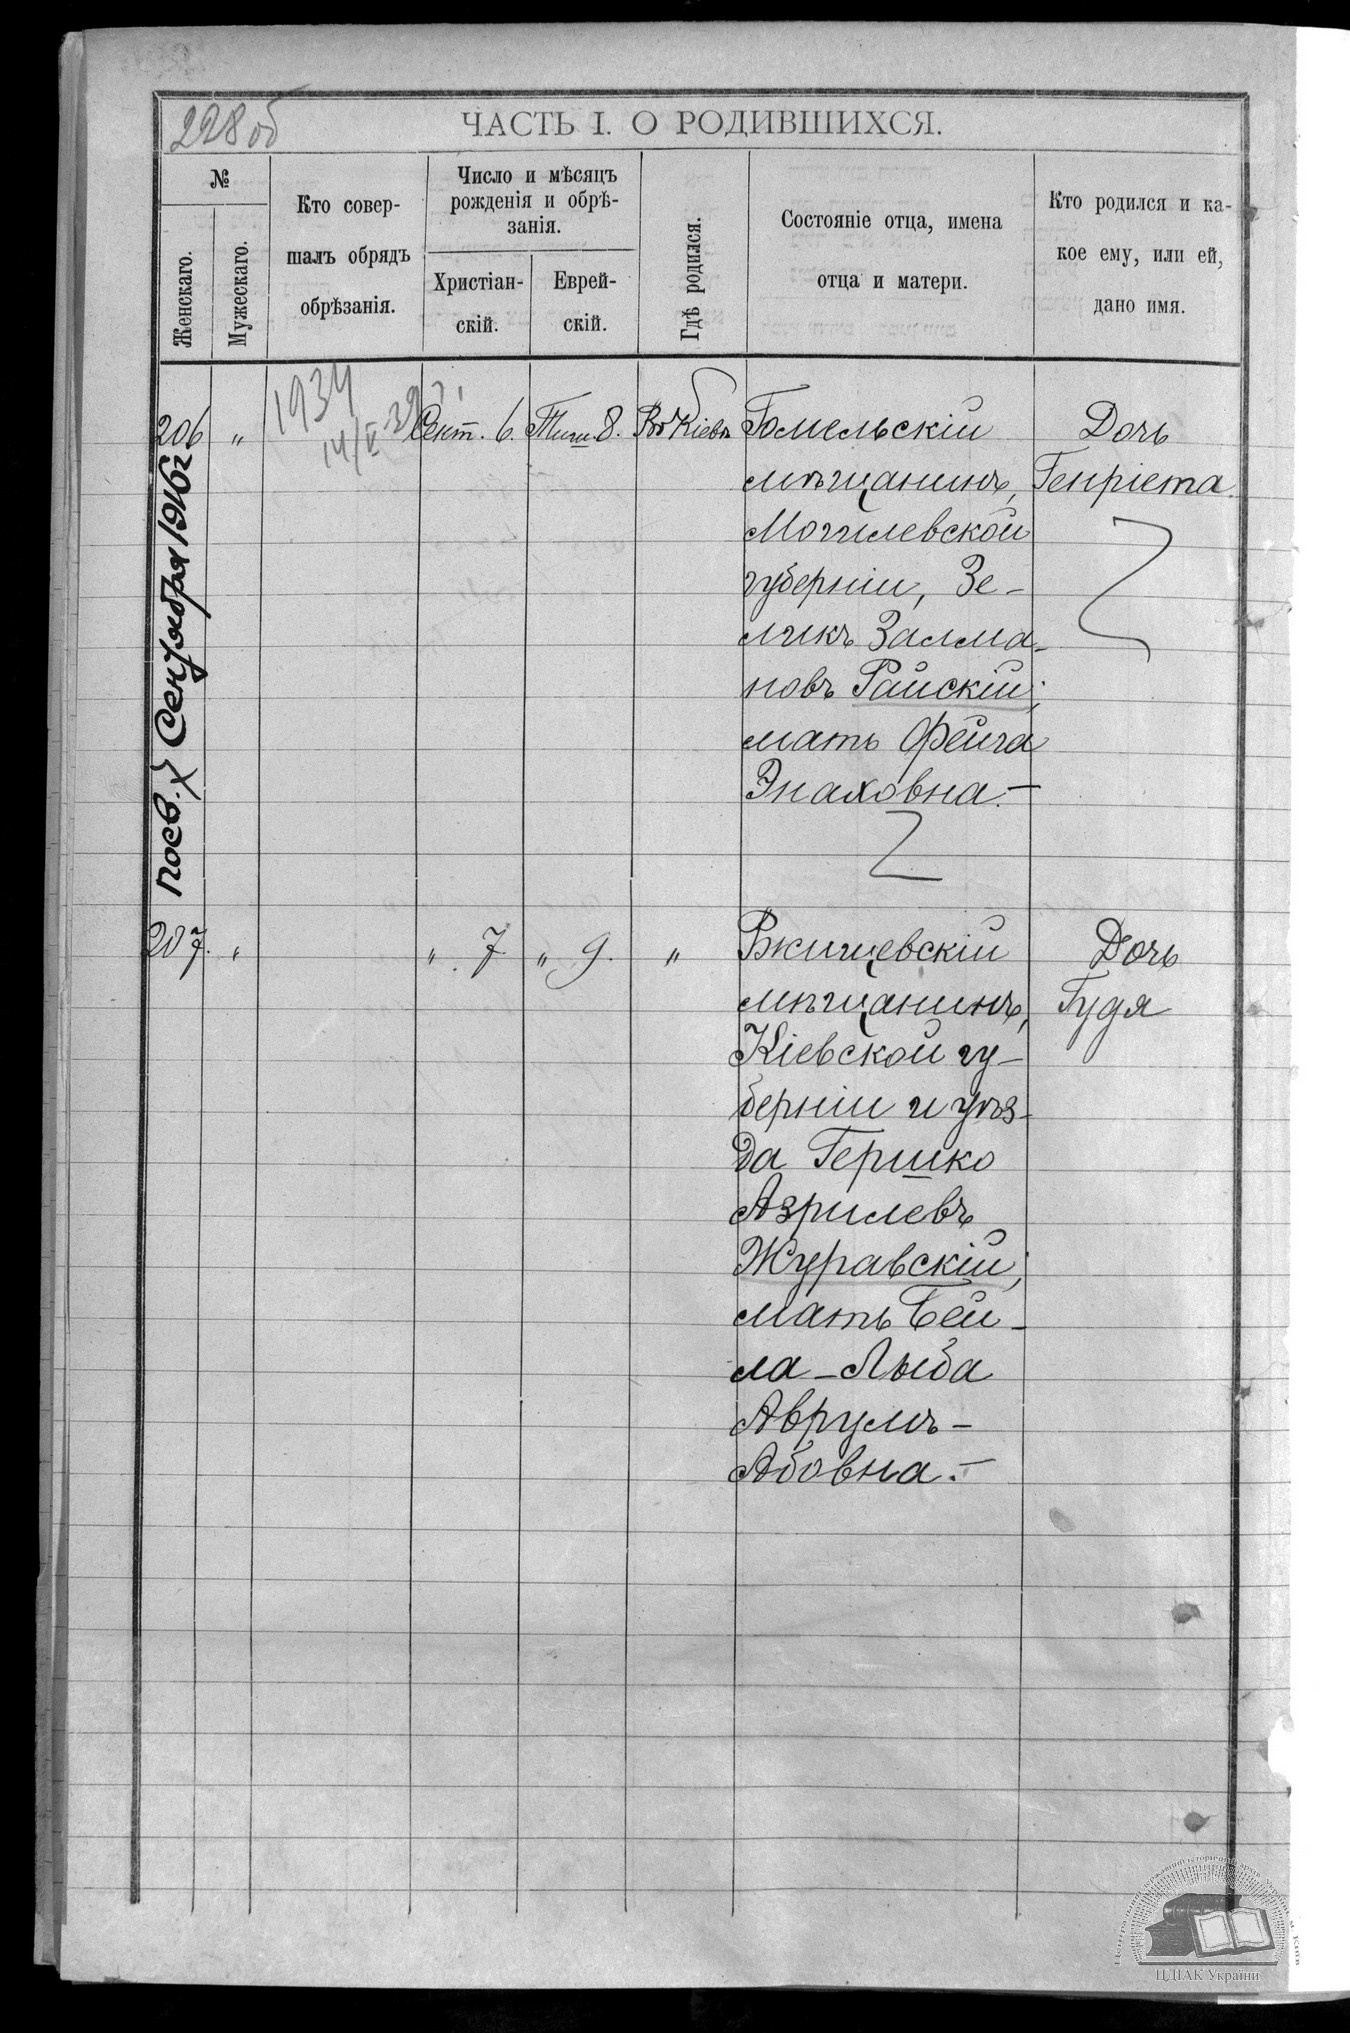 228 об
ЧАСТЬ I. О РОДИВШИХСЯ.
№
Женскаго.
Мужескаго.
Кто совер-
шалъ обрядъ
обрѣзанія.
Число и мѣсяцъ
рожденія и обрѣ-
занія.
Христіан-
скій.
Еврей-
скій.
Гдѣ родился.
Состояніе отца, имена
отца и матери.
Кто родился и ка-
кое ему, или ей,
дано имя.
206 „ 1934 Сент. 6. Тиш. 8. Въ Кіевѣ Гомельскій Дочь
14/V-39
мѣщанинъ, Генріета.
Могилевской
губерніи, Зе-
ликъ Залма-
новъ Райскій;
мать Фейга
Энаховна.-
Сентября 1916 г
207. „ „ 7 „ 9. „ Ржищевскій Дочь
мѣщанинъ, Гудя
Кіевской гу-
берніи и уѣз-
да Гершко
Азрилевъ
Журавскій;
мать Бей-
ла-Лыба
Аврумъ-
Абовна.-
ЦДІАК України